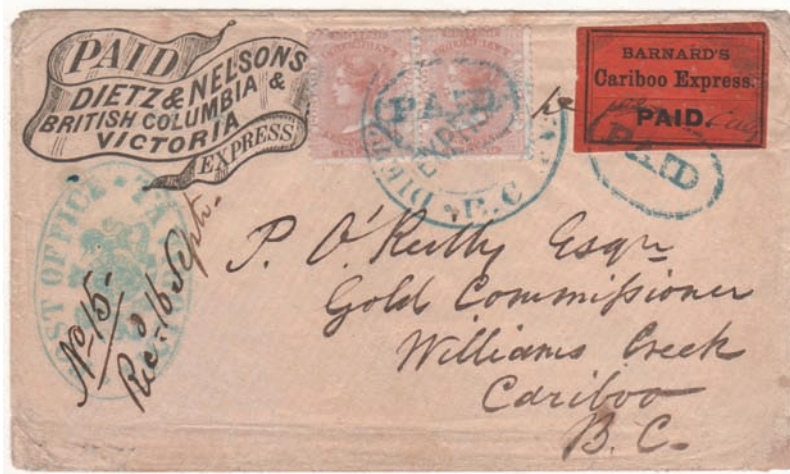 PAID
DIETZ & NELSONS
BRITISH COLUMBIA &
VICTORIA
EXPRESS
PAID
EXPRESS
DIETZ
B.C
BARNARD'S
Cariboo Express.
PAID.
PAID
POST OFFICE
PAID
No 15.
Recd 16 Septr.
P. O'Reilly Esqre
Gold Commissioner
Williams Creek
Cariboo
B.C.